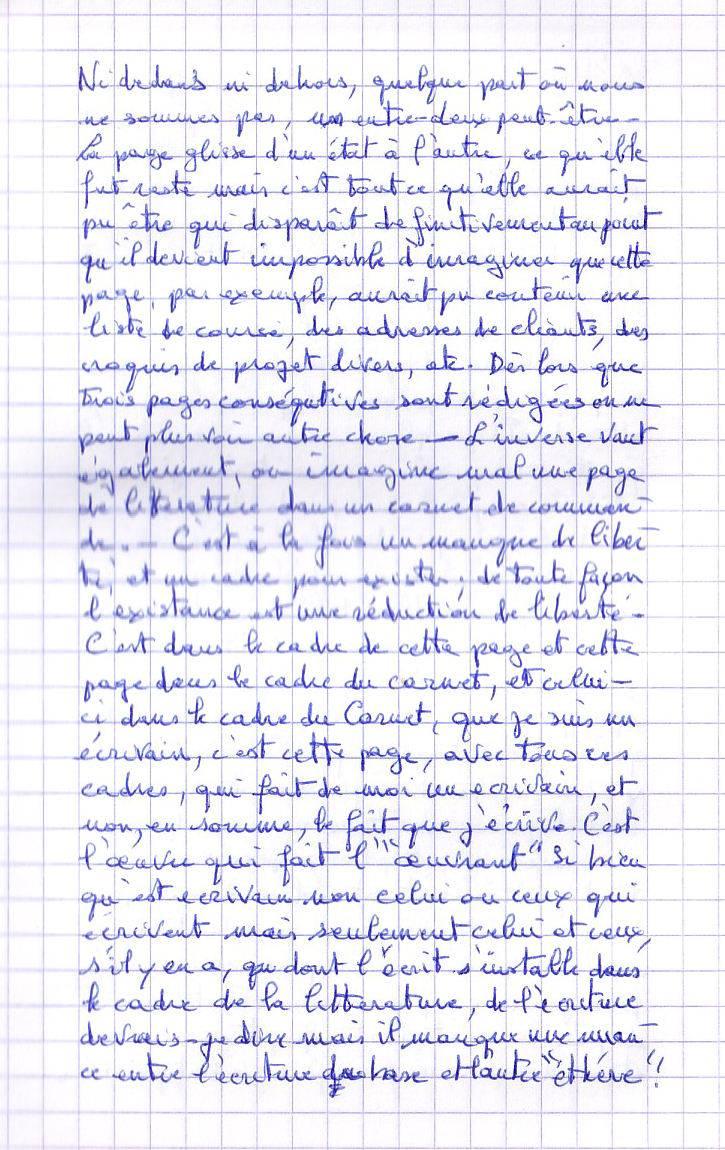 Ni dedans ni dehors, quelque part où nous
ne sommes pas, un entre-deux peut-être -
La page glisse d'un état à l'autre, ce qu'elle
fut reste mais c'est tout ce qu'elle aurait
pu être qui disparaît définitivement au point
qu'il devient impossible d'imaginer que cette
page, par exemple, aurait pu contenir une
liste de course, des adresses de clients, des
croquis de projet divers, etc. Dès lors que
trois pages conséqutives sont rédigées on ne
peut plus voir autre chose — L'inverse vaut
également, on imagine mal une page
de littérature dans un carnet de comman-
de. — C'est à la fois un manque de liber-
té, et un cadre pour exister, de toute façon
l'existance est une réduction de liberté -
C'est dans le cadre de cette page et cette
page dans le cadre du carnet, et celui-
ci dans le cadre du Carnet, que je suis un
écrivain, c'est cette page, avec tous ces
cadres, qui fait de moi un ecrivain, et
non, en somme, le fait que j'écrive. C'est
l'œuvre qui fait l'"œuvrant" Si bien
qu'est ecrivain non celui ou ceux qui
écrivent mais seulement celui et ceux,
s'il y en a, dont l'écrit s'installe dans
le cadre de la litterature, de l'écriture
devrais-je dire mais il manque une nuan-
ce entre l'écriture base et l'autre "éthérée"!